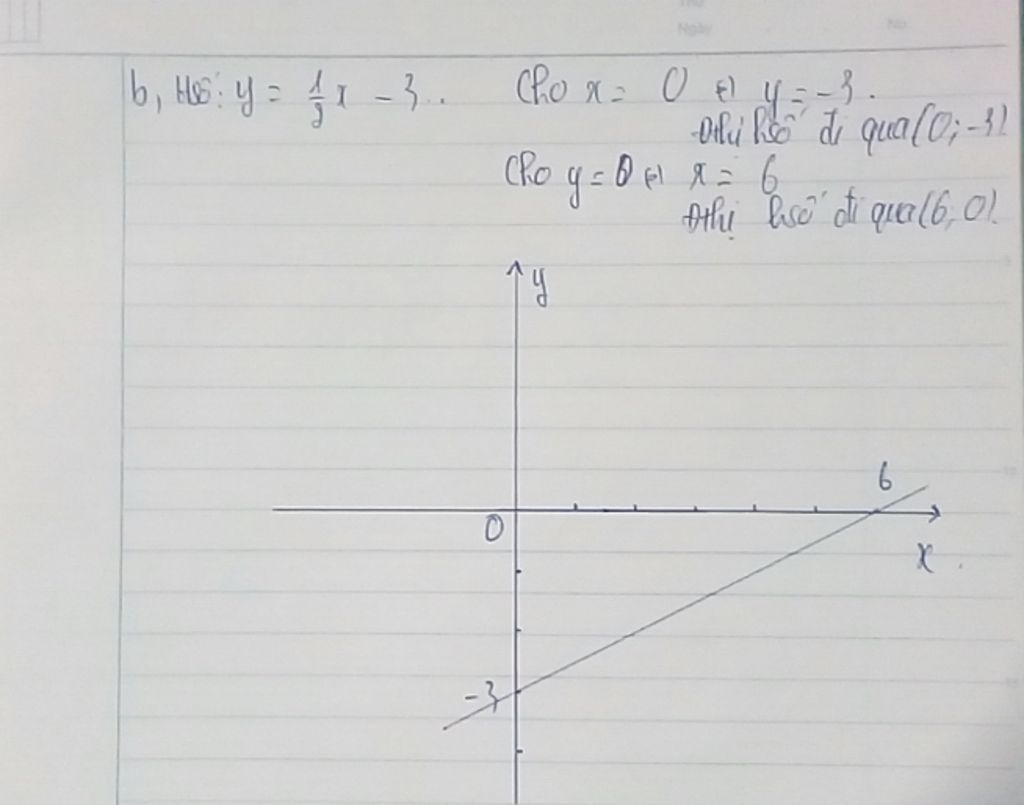 b, Hsố: y = 1/2 x - 3. Cho x = 0 (=) y = -3.
Đthị hsố đi qua (0; -3)
Cho y = 0 (=) x = 6
Đthị hsố đi qua (6; 0).
y
6
0
x
-3